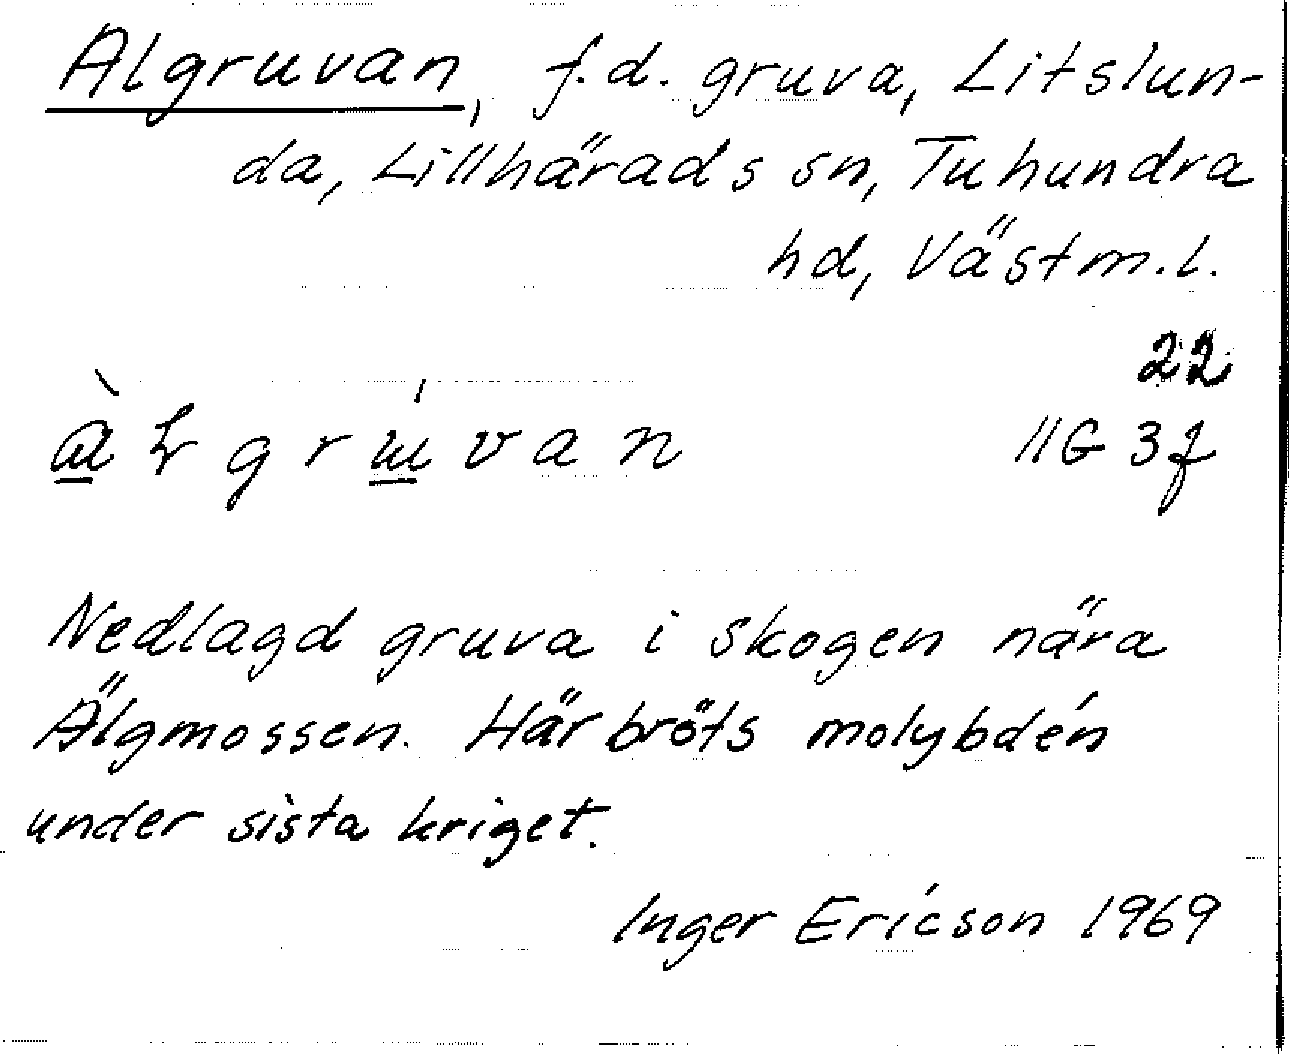 Algruvan, f.d. gruva, Litslun-
da, Lillhärads sn, Tuhundra
hd, Västm.l.
22
11G 3f
Nedlagd gruva i skogen nära
Älgmossen. Här bröts molybdén
under sista kriget.
Inger Ericson 1969